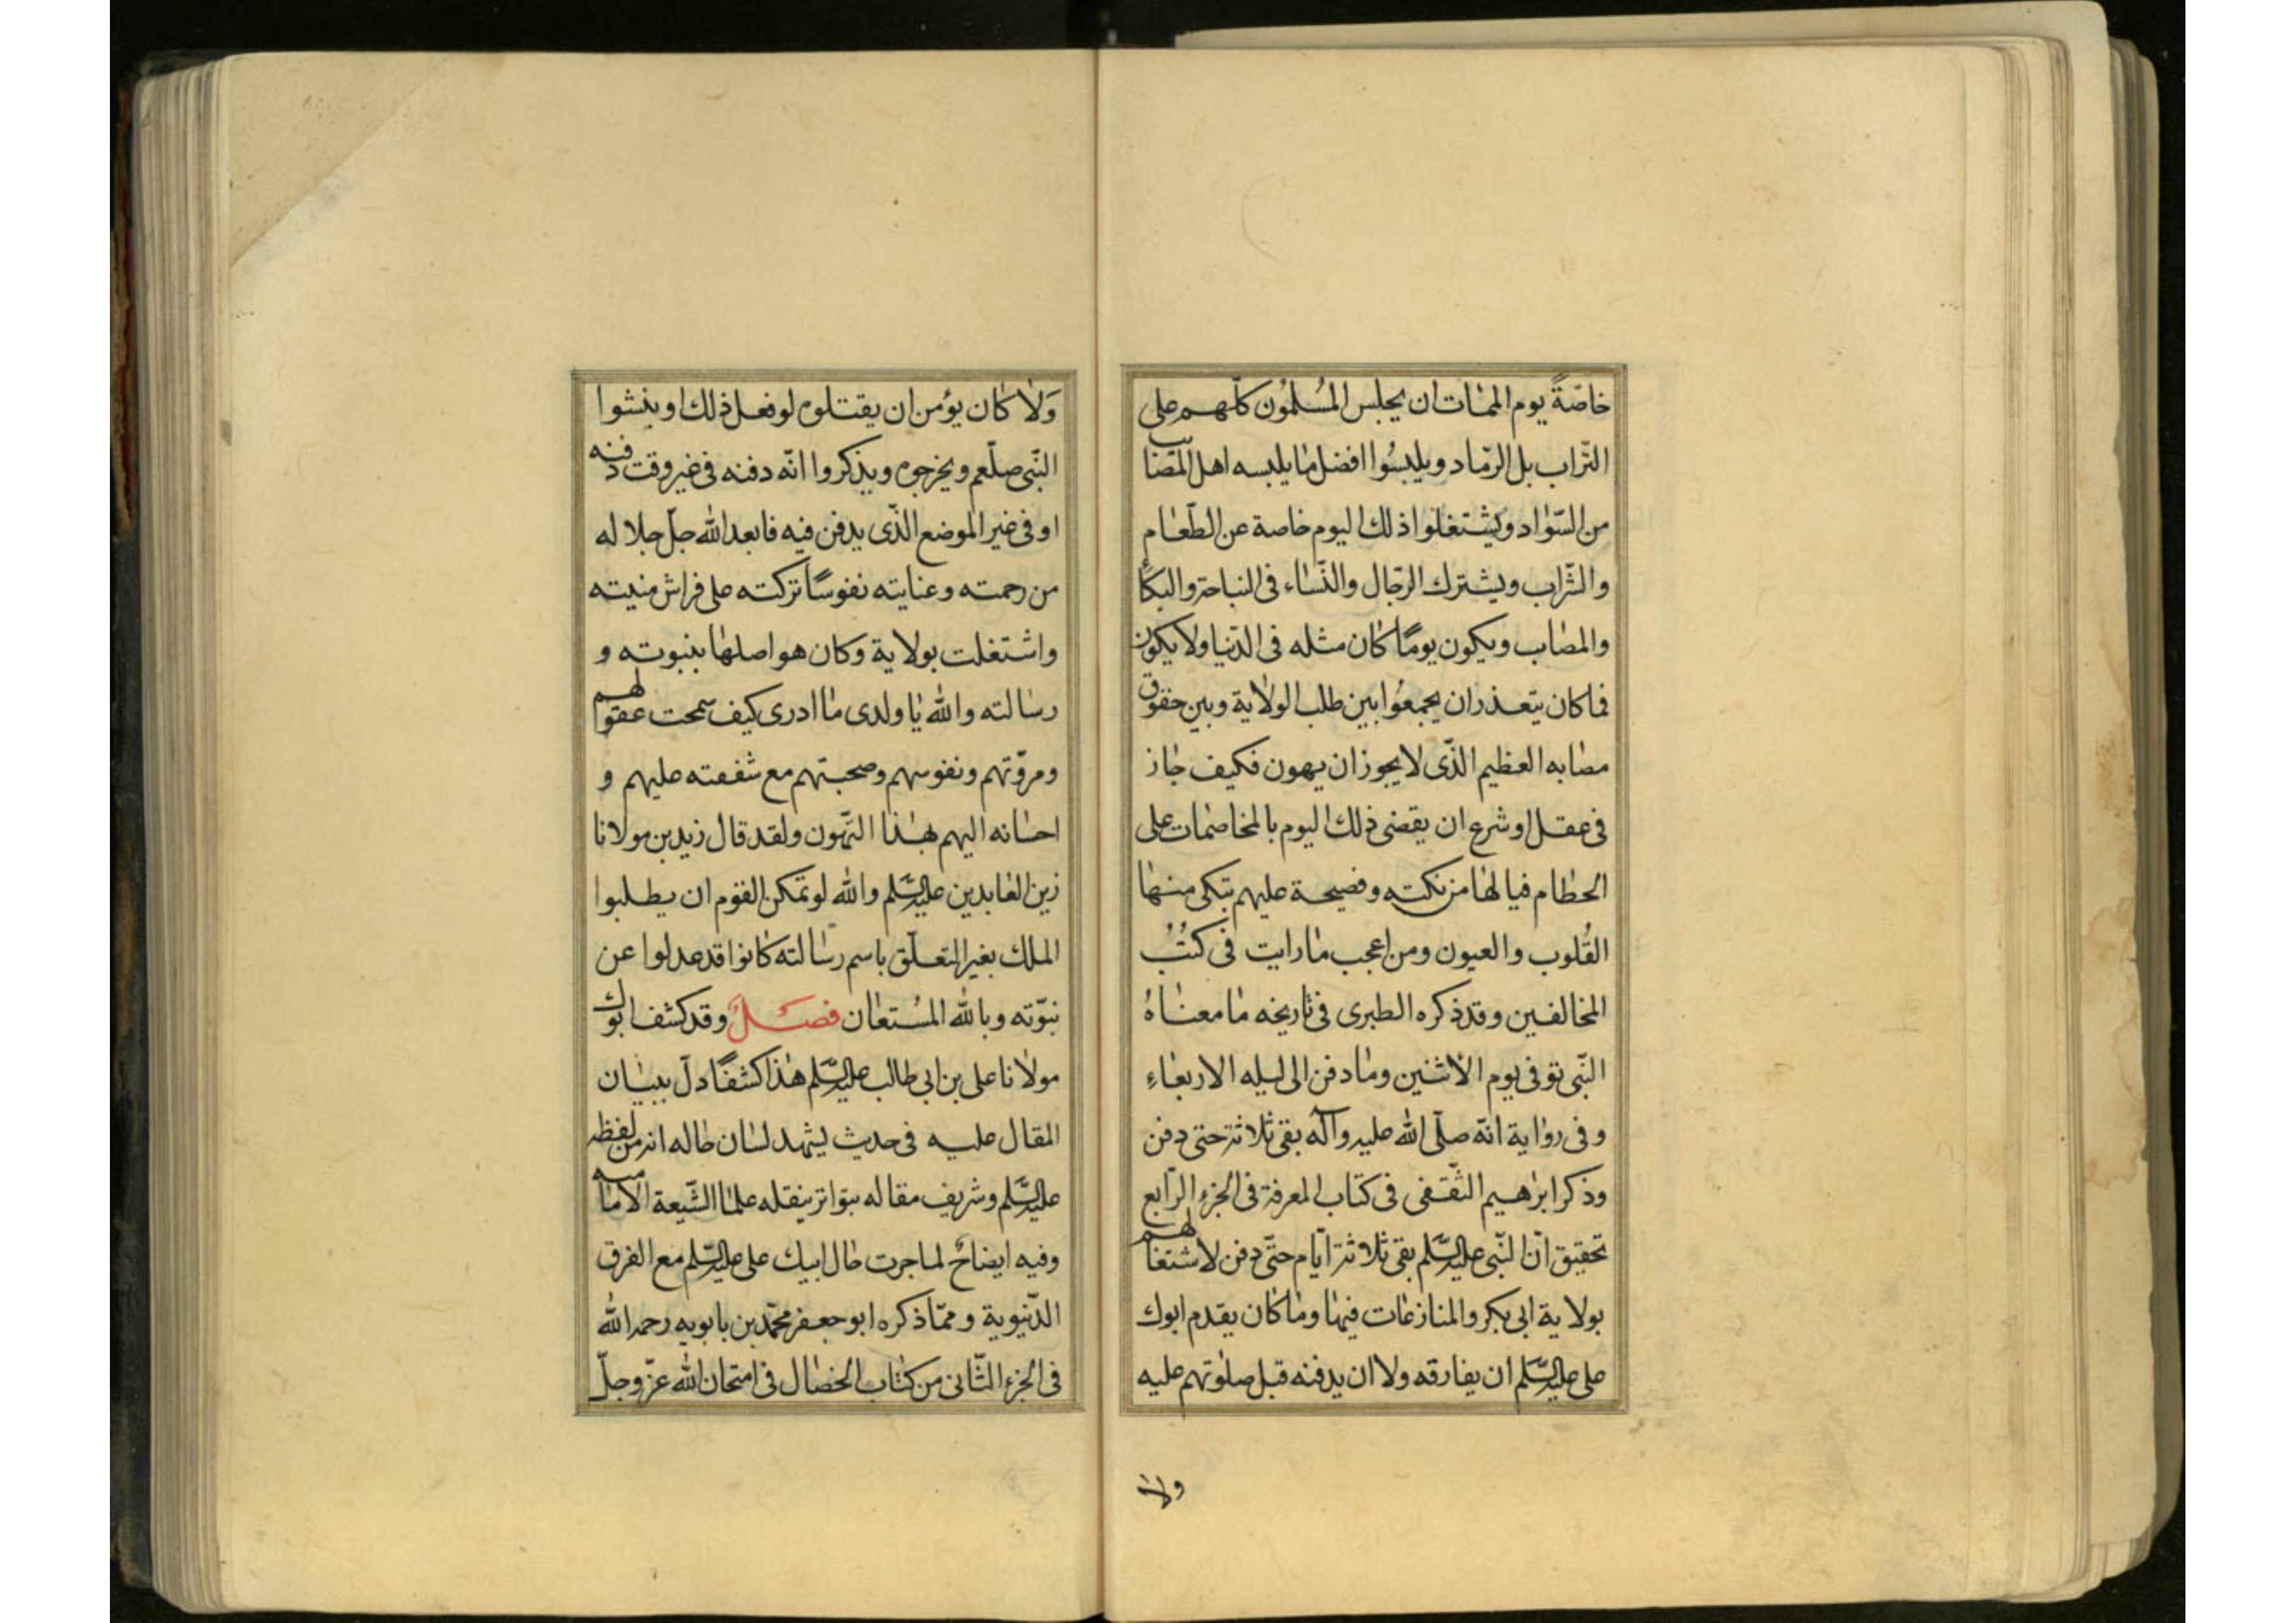 خاصّةً يوم الممات ان يجلس المُسلمُون كلّهم على
التّراب بل الرّماد ويلبسُوا افضل ما يلبسه اهل المصَائب
من السّواد ويشتغلوا ذلك اليوم خاصة عن الطّعام
والشّراب ويشترك الرّجال والنّساء فى النياحة والبكاء
والمصاب ويكون يومًا كان مثله فى الدّنيا ولا يكون
فما كان يتعذر ان يجمعُوا بين طلب الولاية وبين حقوق
مصابه العظيم الذّى لا يجوز ان يهون فكيف جاز
فى عقل او شرع ان يقضى ذلك اليوم بالمخاصمات على
الحطام فيا لها من نكته وفضيحة عليهم تبكى منها
القُلوب والعيون ومن اعجب ما رايت فى كتُبُ
المخالفين وقد ذكره الطبرى فى تاريخه ما معناهُ
النّبى توفى يوم الاثنين وما دفن الى ليله الاربعاءِ
وفى رواية انّه صلّى الله عليه وآله بقى ثلاثة حتى دفن
وذكر ابراهيم الثّقفى فى كتاب المعرفة فى الجزء الرّابع
تحقيق انّ النّبى عليه السّلم بقى ثلاثة ايّام حتّى دفن لاشتغالهم
بولاية ابى بكر والمنازعات فيها وما كان يقدم ابوك
على عليه السّلم ان يفارقه ولا ان يدفنه قبل صلوتهم عليه
ولا
وَلا كان يؤمن ان يقتلوه لو فعل ذلك او ينبشوا
النّبى صلّعم ويخرجوه ويذكروا انّه دفنه فى غير وقت دفنه
او فى غير الموضع الذّى يدفن فيه فابعد الله جلّ جلاله
من رحمته وعنايته نفوسًا تركته على فراش منيته
واشتغلت بولاية وكان هو اصلها بنبوته و
رسالته والله يا ولدى ما ادرى كيف سمحت عقولهم
ومروّتهم ونفوسهم وصحبتهم مع شفقته عليهم و
احسانه اليهم بهذا التّهون ولقد قال زيد بن مولانا
زين العابدين عليه السّلم والله لو تمكن القوم ان يطلبوا
الملك بغير التعلّق باسم رسالته كانوا قد عدلوا عن
نبوّته وبالله المُستعان فصلٌ وقد كشف ابوك
مولانا على بن ابى طالب عليه السّلم هذا كشفًا دلّ ببيان
المقال عليه فى حديث يشهد لسان حاله انه من لفظه
عليه السّلم وشريف مقاله بتواتر ينقله علما الشّيعة الاماميه
وفيه ايضاحٌ لما جرت حال ابيك على عليه السّلم مع الفرق
الدّنيوية وممّا ذكره ابو جعفر محمّد بن بابويه رحمه الله
فى الجزء الثّانى من كتاب الخصال فى امتحان الله عزّ وجلّ